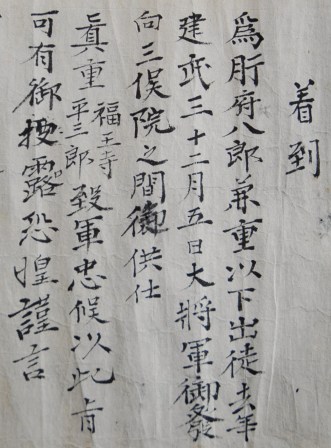 着到
為肝府八郎兼重以下出徒去年
建武三十二月五日大将軍御發
向三俣院之間御供仕
眞重福王寺平三郎致軍忠候以此旨
可有御披露恐惶謹言